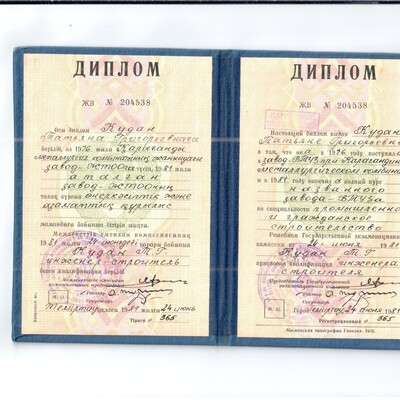 ДИПЛОМ
ЖВ № 204538
Осы диплом Кудан
Татьяна Григорьевнаға
берілді, ол 1976 жылы Қарағанды
металлургия комбинатының жанындағы
завод-ЖТОО түсіп, 1981 жылы
аталған
завод-ЖТООның
толық курсын өнеркәсіптік және
азаматтық құрылыс
мамандығы бойынша бітіріп шықты.
Мемлекеттік емтихан комиссиясының
1981 жылғы 24 июньдегі қарары бойынша
Кудан Т.Г.
инженер-строитель
деген квалификация берілді.
М.О.
Теміртау қаласы 1981 жылғы 24 июнь
Тіркеу № 365
ДИПЛОМ
ЖВ № 204538
Настоящий диплом выдан Кудан
Татьяне Григорьевне
в том, что она в 1976 году поступила
в завод-ВТУЗ при Карагандинском
металлургическом комбинате
и в 1981 году окончила полный курс
названного
завода-ВТУЗа
по специальности промышленное
и гражданское
строительство
Решением Государственной экзаменационной
комиссии от 24 июня 1981
Кудан Т.Г.
присвоена квалификация инженера
строителя
Председатель Государственной
экзаменационной комиссии
Ректор
Секретарь
М.П.
Город Темиртау 24 июня 1981
Регистрационный № 365
Московская типография Гознака. 1976.